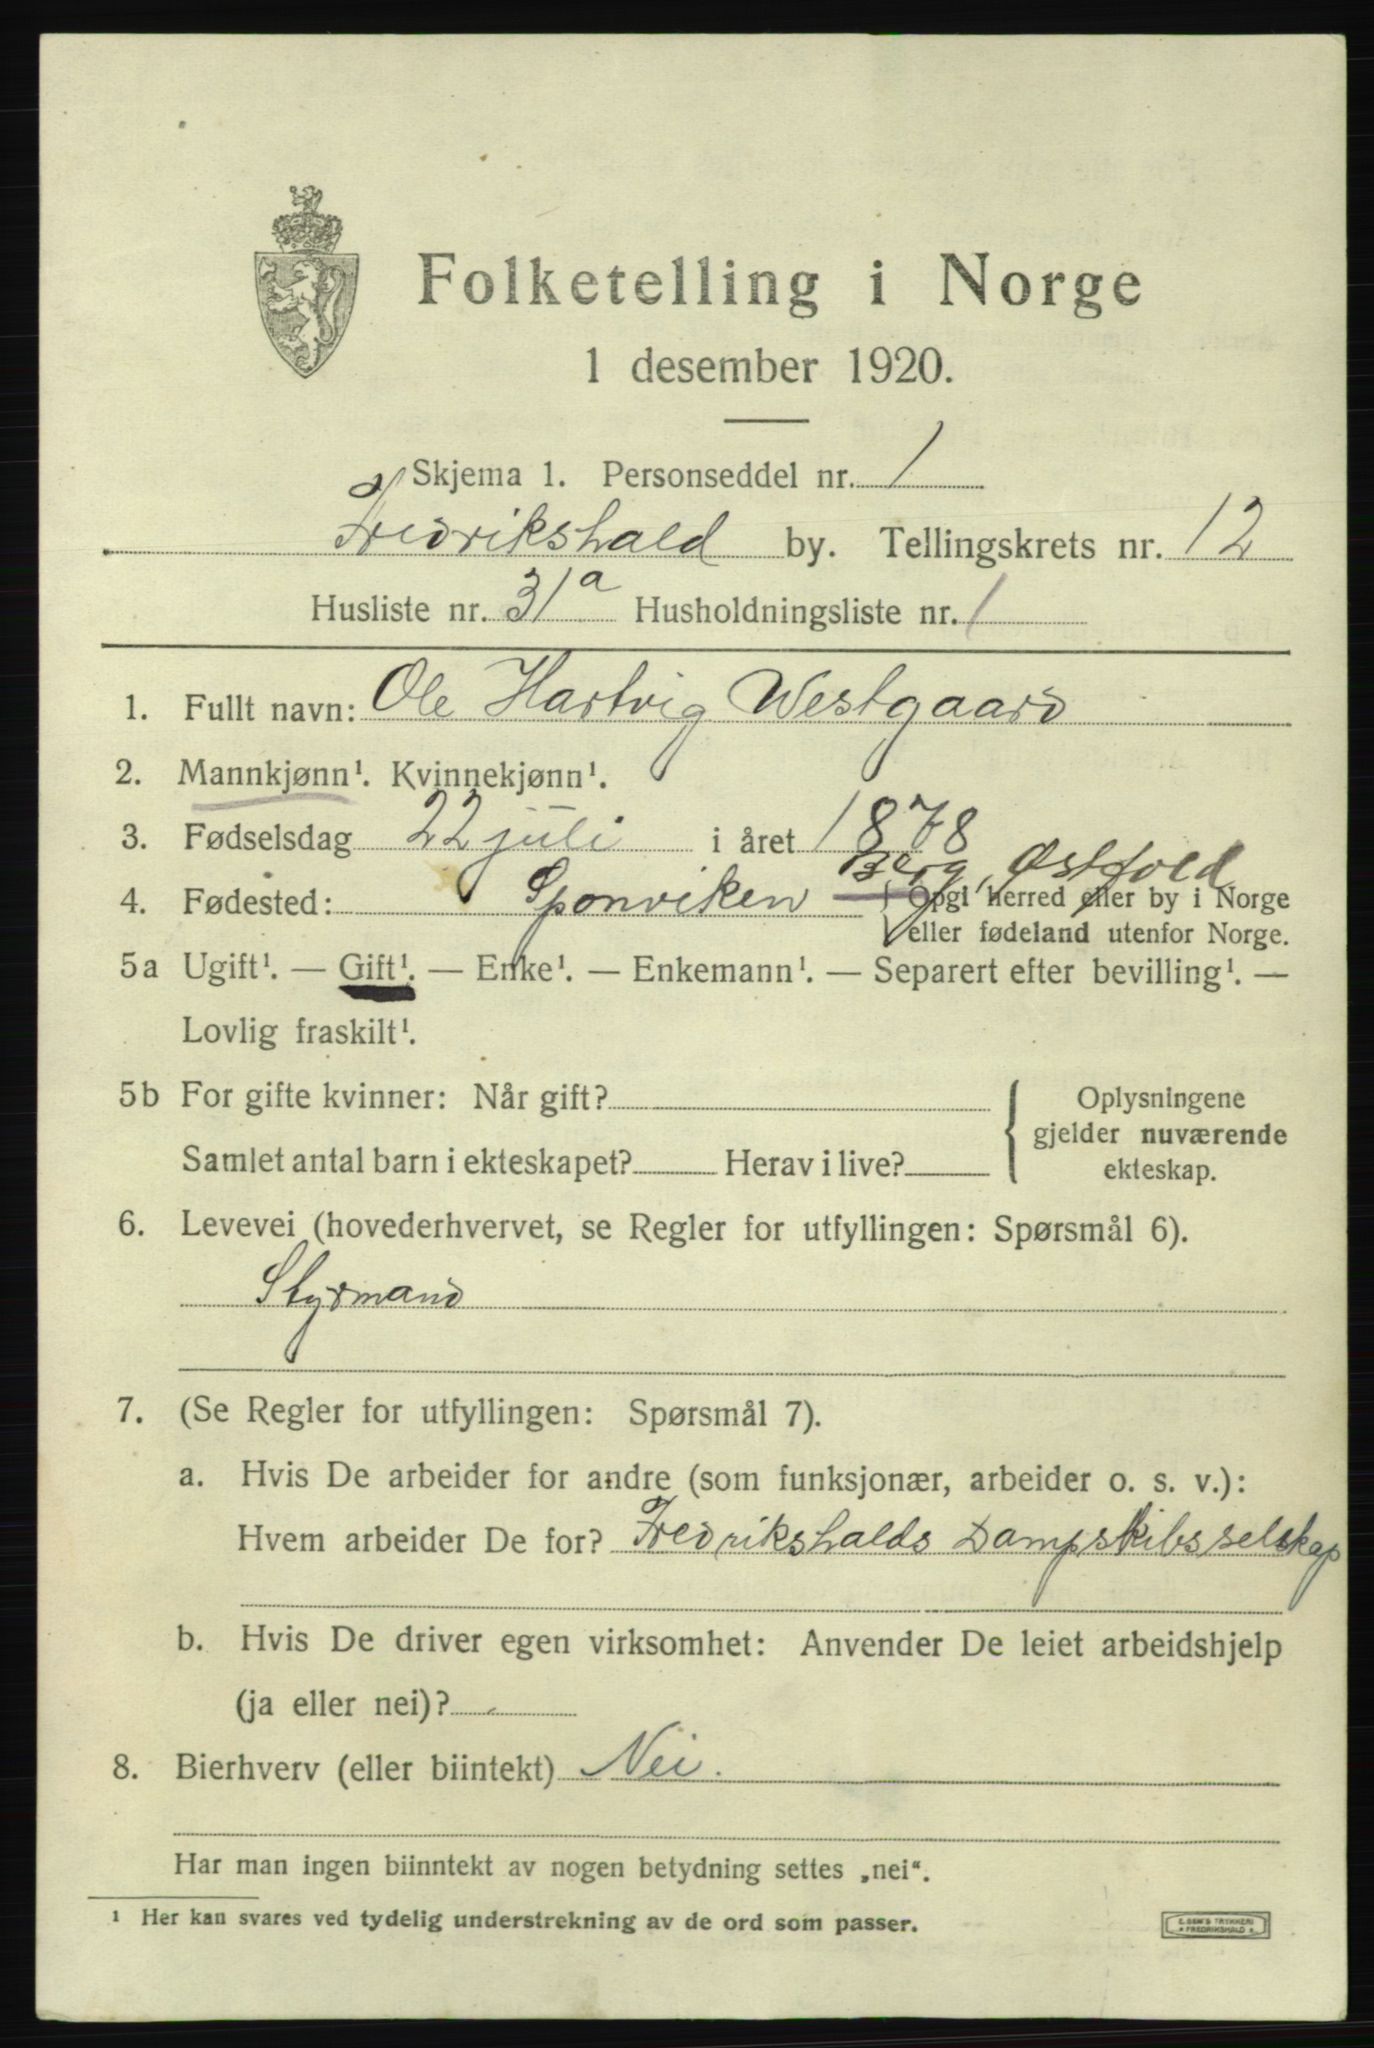 Folketelling i Norge
1 desember 1920.
Skjema 1. Personseddel nr. 1
Fredrikshald by. Tellingskrets nr. 12
Husliste nr. 31a Husholdningsliste nr. 1
1. Fullt navn: Ole Hartvig Westgaard
2. Mannkjønn¹. Kvinnekjønn¹.
3. Fødselsdag 22 juli i året 1878
Berg, Østfold
4. Fødested: Sponviken { Opgi herred eller by i Norge
eller fødeland utenfor Norge.
5a Ugift¹. — Gift¹. — Enke¹. — Enkemann¹. — Separert efter bevilling¹. —
Lovlig fraskilt¹.
5b For gifte kvinner: Når gift? { Oplysningene
gjelder nuværende
Samlet antal barn i ekteskapet? Herav i live? ekteskap.
6. Levevei (hovederhvervet, se Regler for utfyllingen: Spørsmål 6).
Styrmand
7. (Se Regler for utfyllingen: Spørsmål 7).
a. Hvis De arbeider for andre (som funksjonær, arbeider o. s. v.):
Hvem arbeider De for? Fredrikshalds Dampskibsselskap
b. Hvis De driver egen virksomhet: Anvender De leiet arbeidshjelp
(ja eller nei)?
8. Bierhverv (eller biintekt) Nei.
Har man ingen biinntekt av nogen betydning settes „nei“.
¹ Her kan svares ved tydelig understrekning av de ord som passer.
TRYKKERI
FREDRIKSHALD